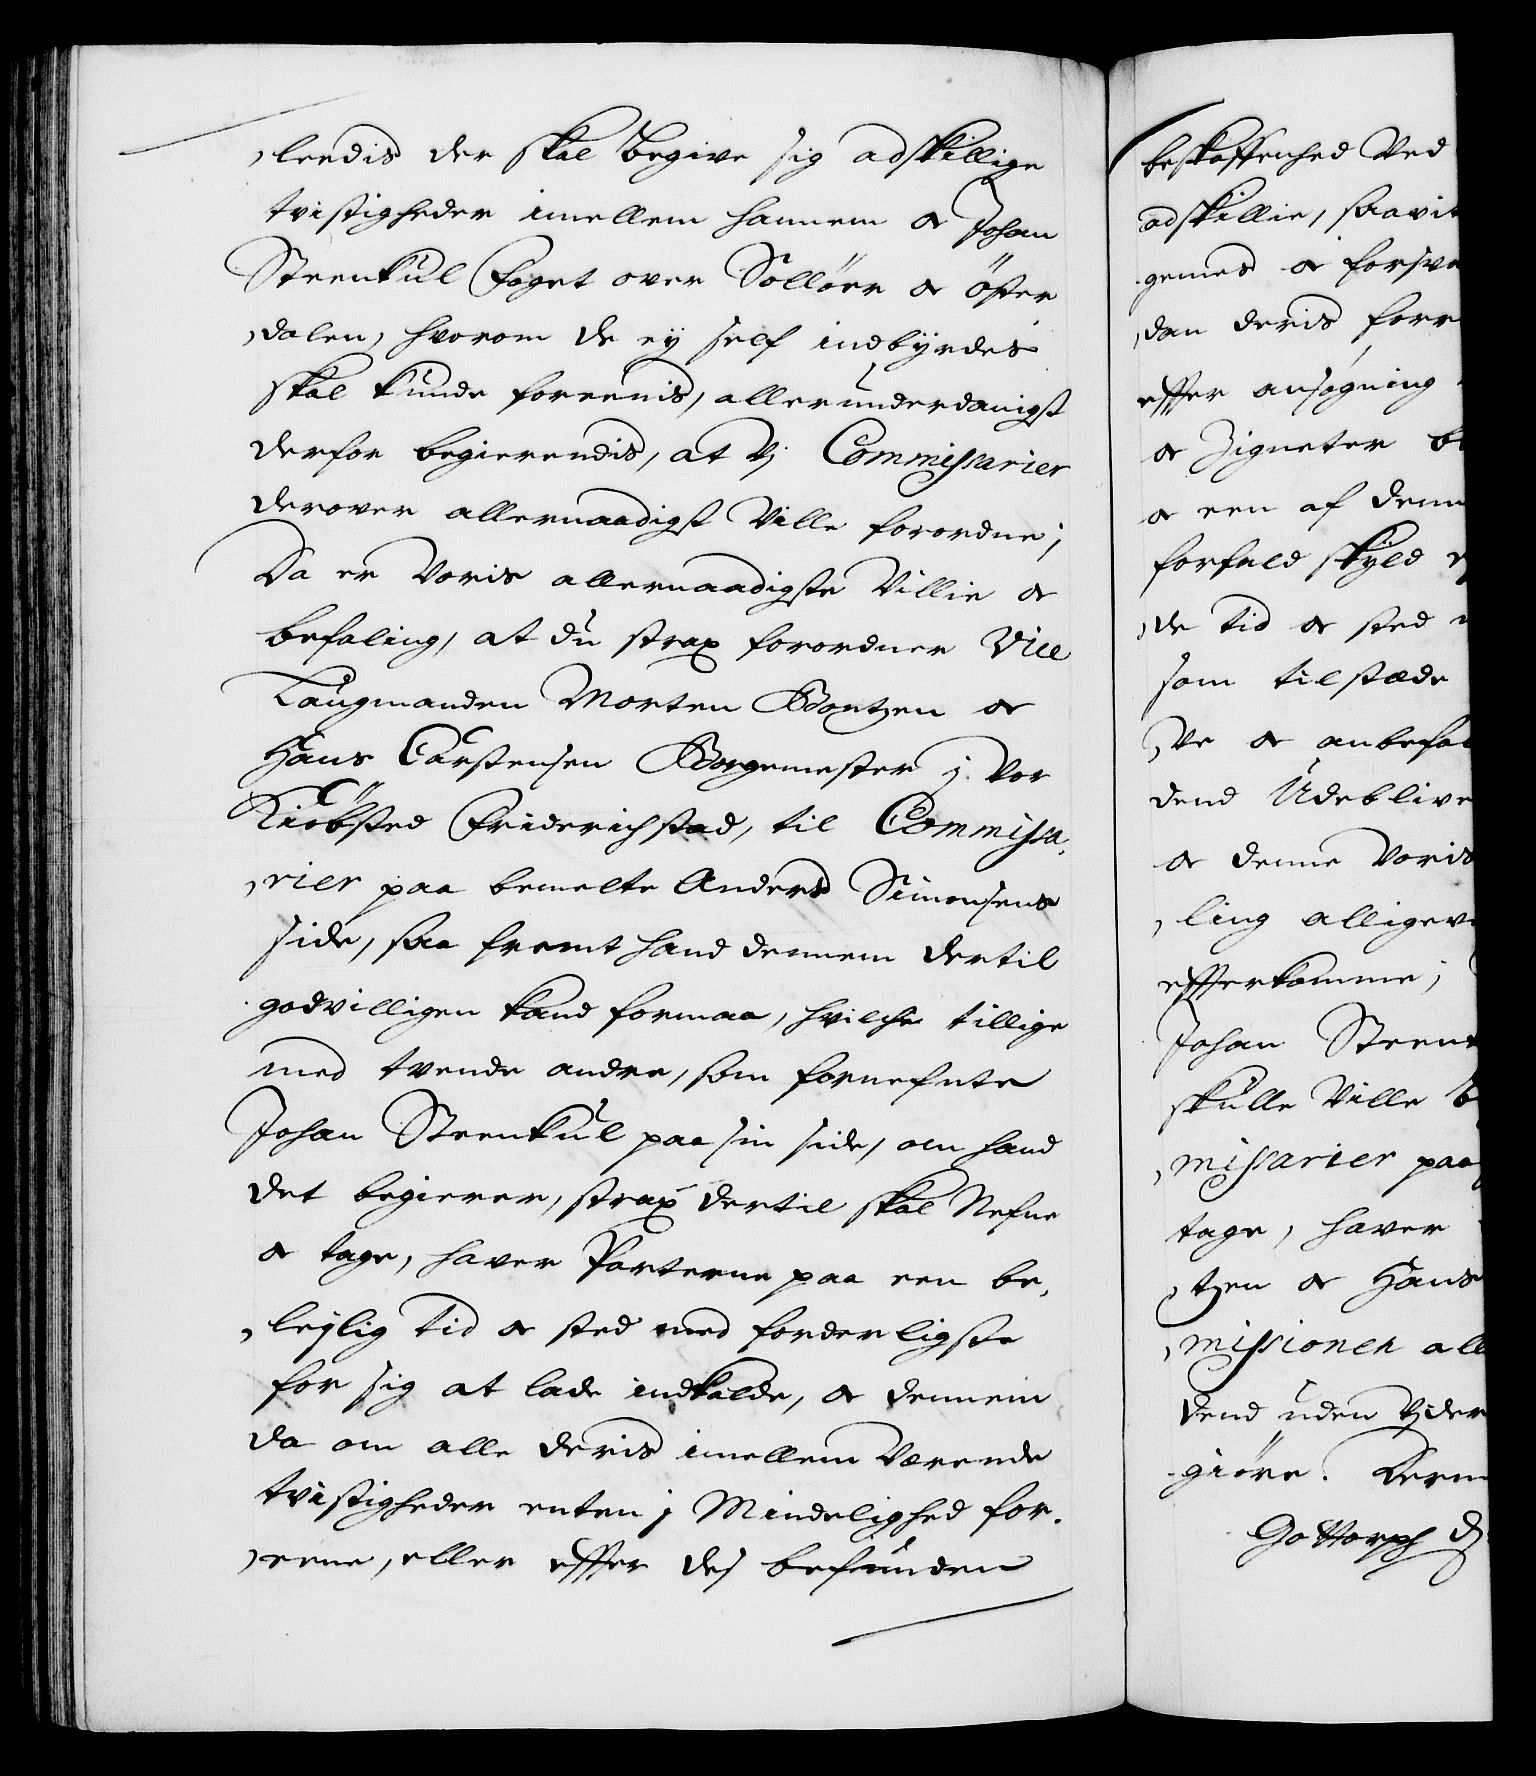 ,lendis der skal begive sig adskillige
tvistigheder imellem hannem oc Johan
Steenkul Foget over Sollöer oc öster
,dalen, hvorom de ey self indbÿrdes
skal kunde foreenis, allerunderdanigst
derfor begierendis, at Vj Commissarier
derover allernaadigst Ville forordne;
Da er Voris allernaadigste Villie oc
befaling, at du strax forordner Vice
Laugmanden Morten Bentzen oc
Hans Carstensen Borgemester j Vor
Kiöbsted Friderichstad, til Commissa,
,rier paa bemelte Anders Simonsens
side, saa fremt hand dennem dertil
godvilligen kand formaa, hvilche tillige
med tvende andre, som fornefnte
Johan Steenkul paa sin side, om hand
det begierer, strax dertil skal Nefne
oc tage, haver Parterne paa een be,
,leylig tid oc sted med forderligste
for sig at lade indkalde, oc dennem
da om alle deris imellem Værende
tvistigheder enten j Mindelighed for,
,eene, eller efter des befunden
beskaffenhed Ved
adskillie, saavit
gemes oc forsva
,dan deris forr
efter ansögning
oc Zigneter b
oc een af denn
forfald skyld
,de tid oc sted
som tilstæde
,Ve oc anbefal
dend Udeblive
oc denne Voris
,ling alligeve
efterkomme;
Johan Steenk
skulle Ville b
,missarier paa
tage, haver
,tzen oc Hans
,missionen all
dend uden Vider
giöre. Derm
Gottorph d